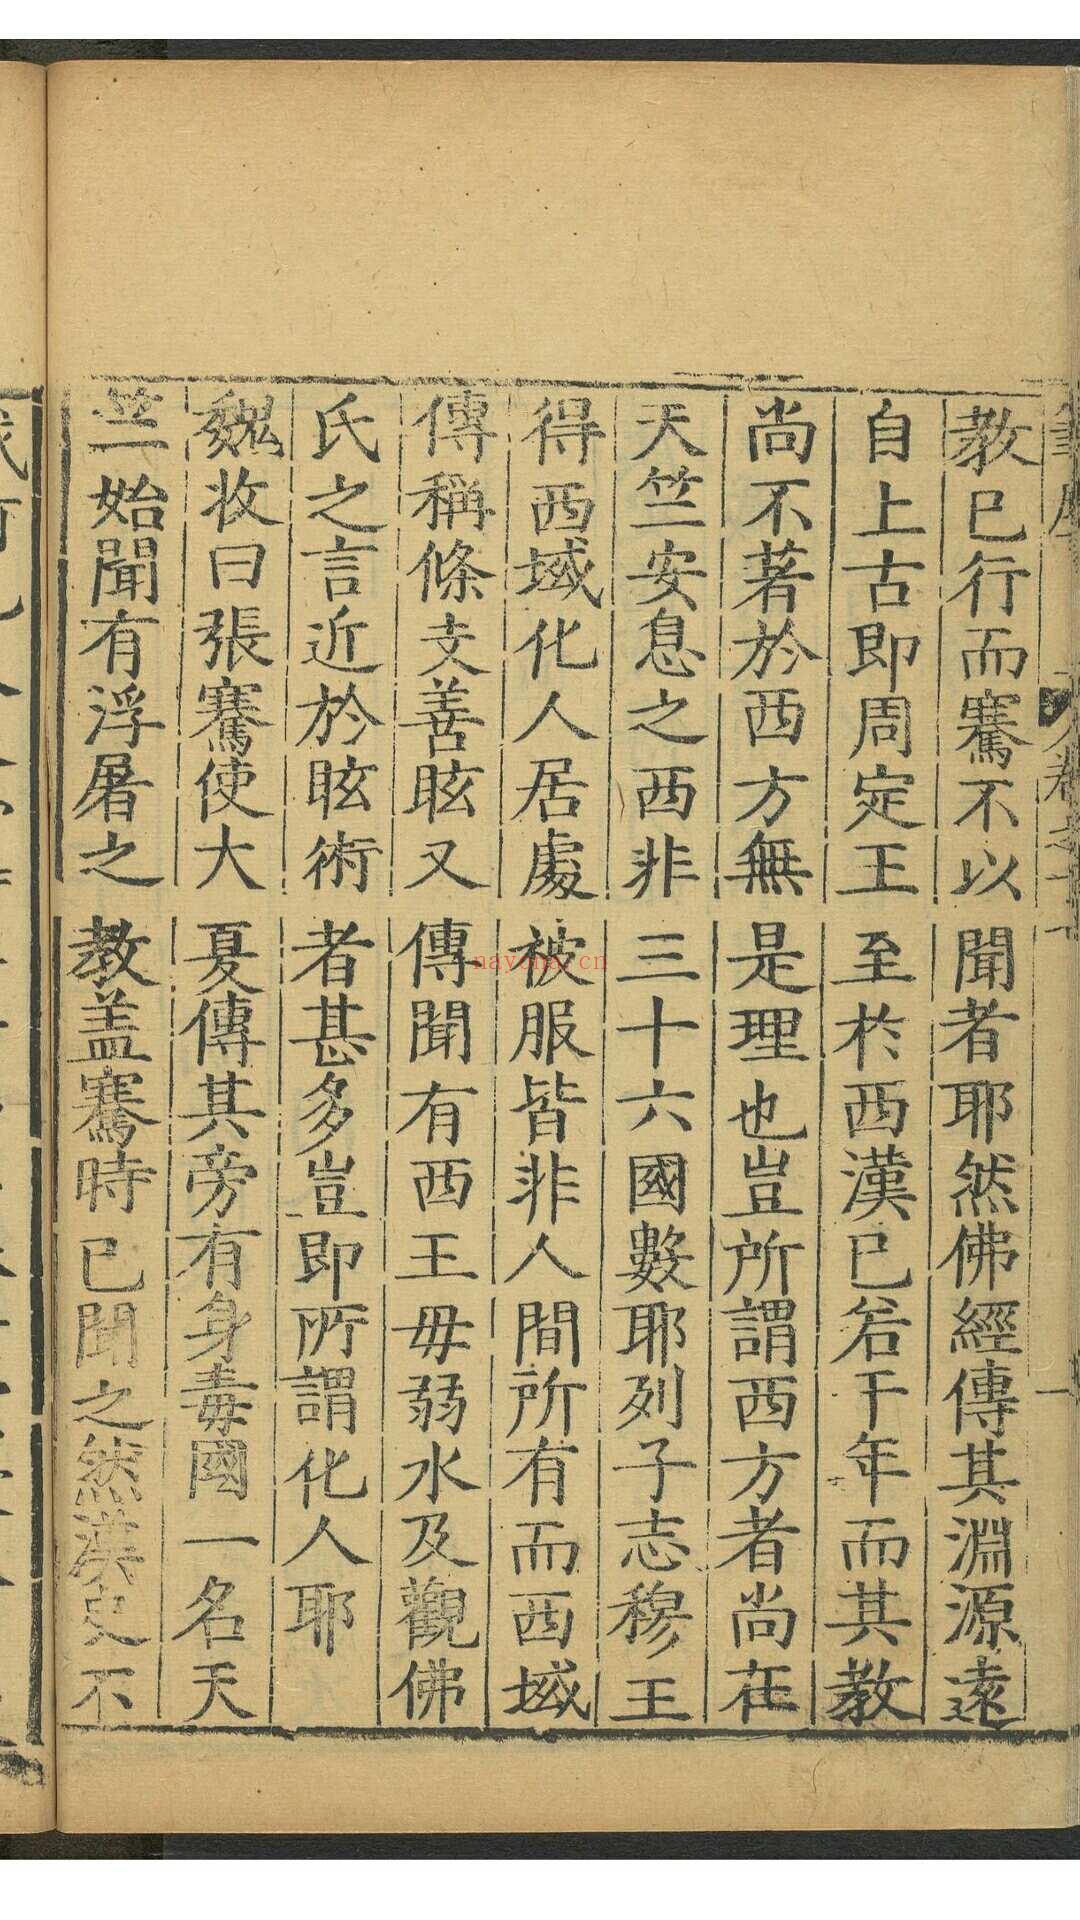 教已行而騫不以聞者耶然佛經傳其淵源遠
自上古即周定王至於西漢已若干年而其教
尚不著於西方無是理也豈所謂西方者尚在
天竺安息之西非三十六國數耶列子志穆王
得西域化人居處被服皆非人間所有而西域
傳稱條支善眩又傳聞有西王毋弱水及觀佛
氏之言近於眩術者甚多豈即所謂化人耶
魏收曰張騫使大夏傳其旁有身毒國一名天
竺始聞有浮屠之教盖騫時已聞之然漢史不
nayona.cn